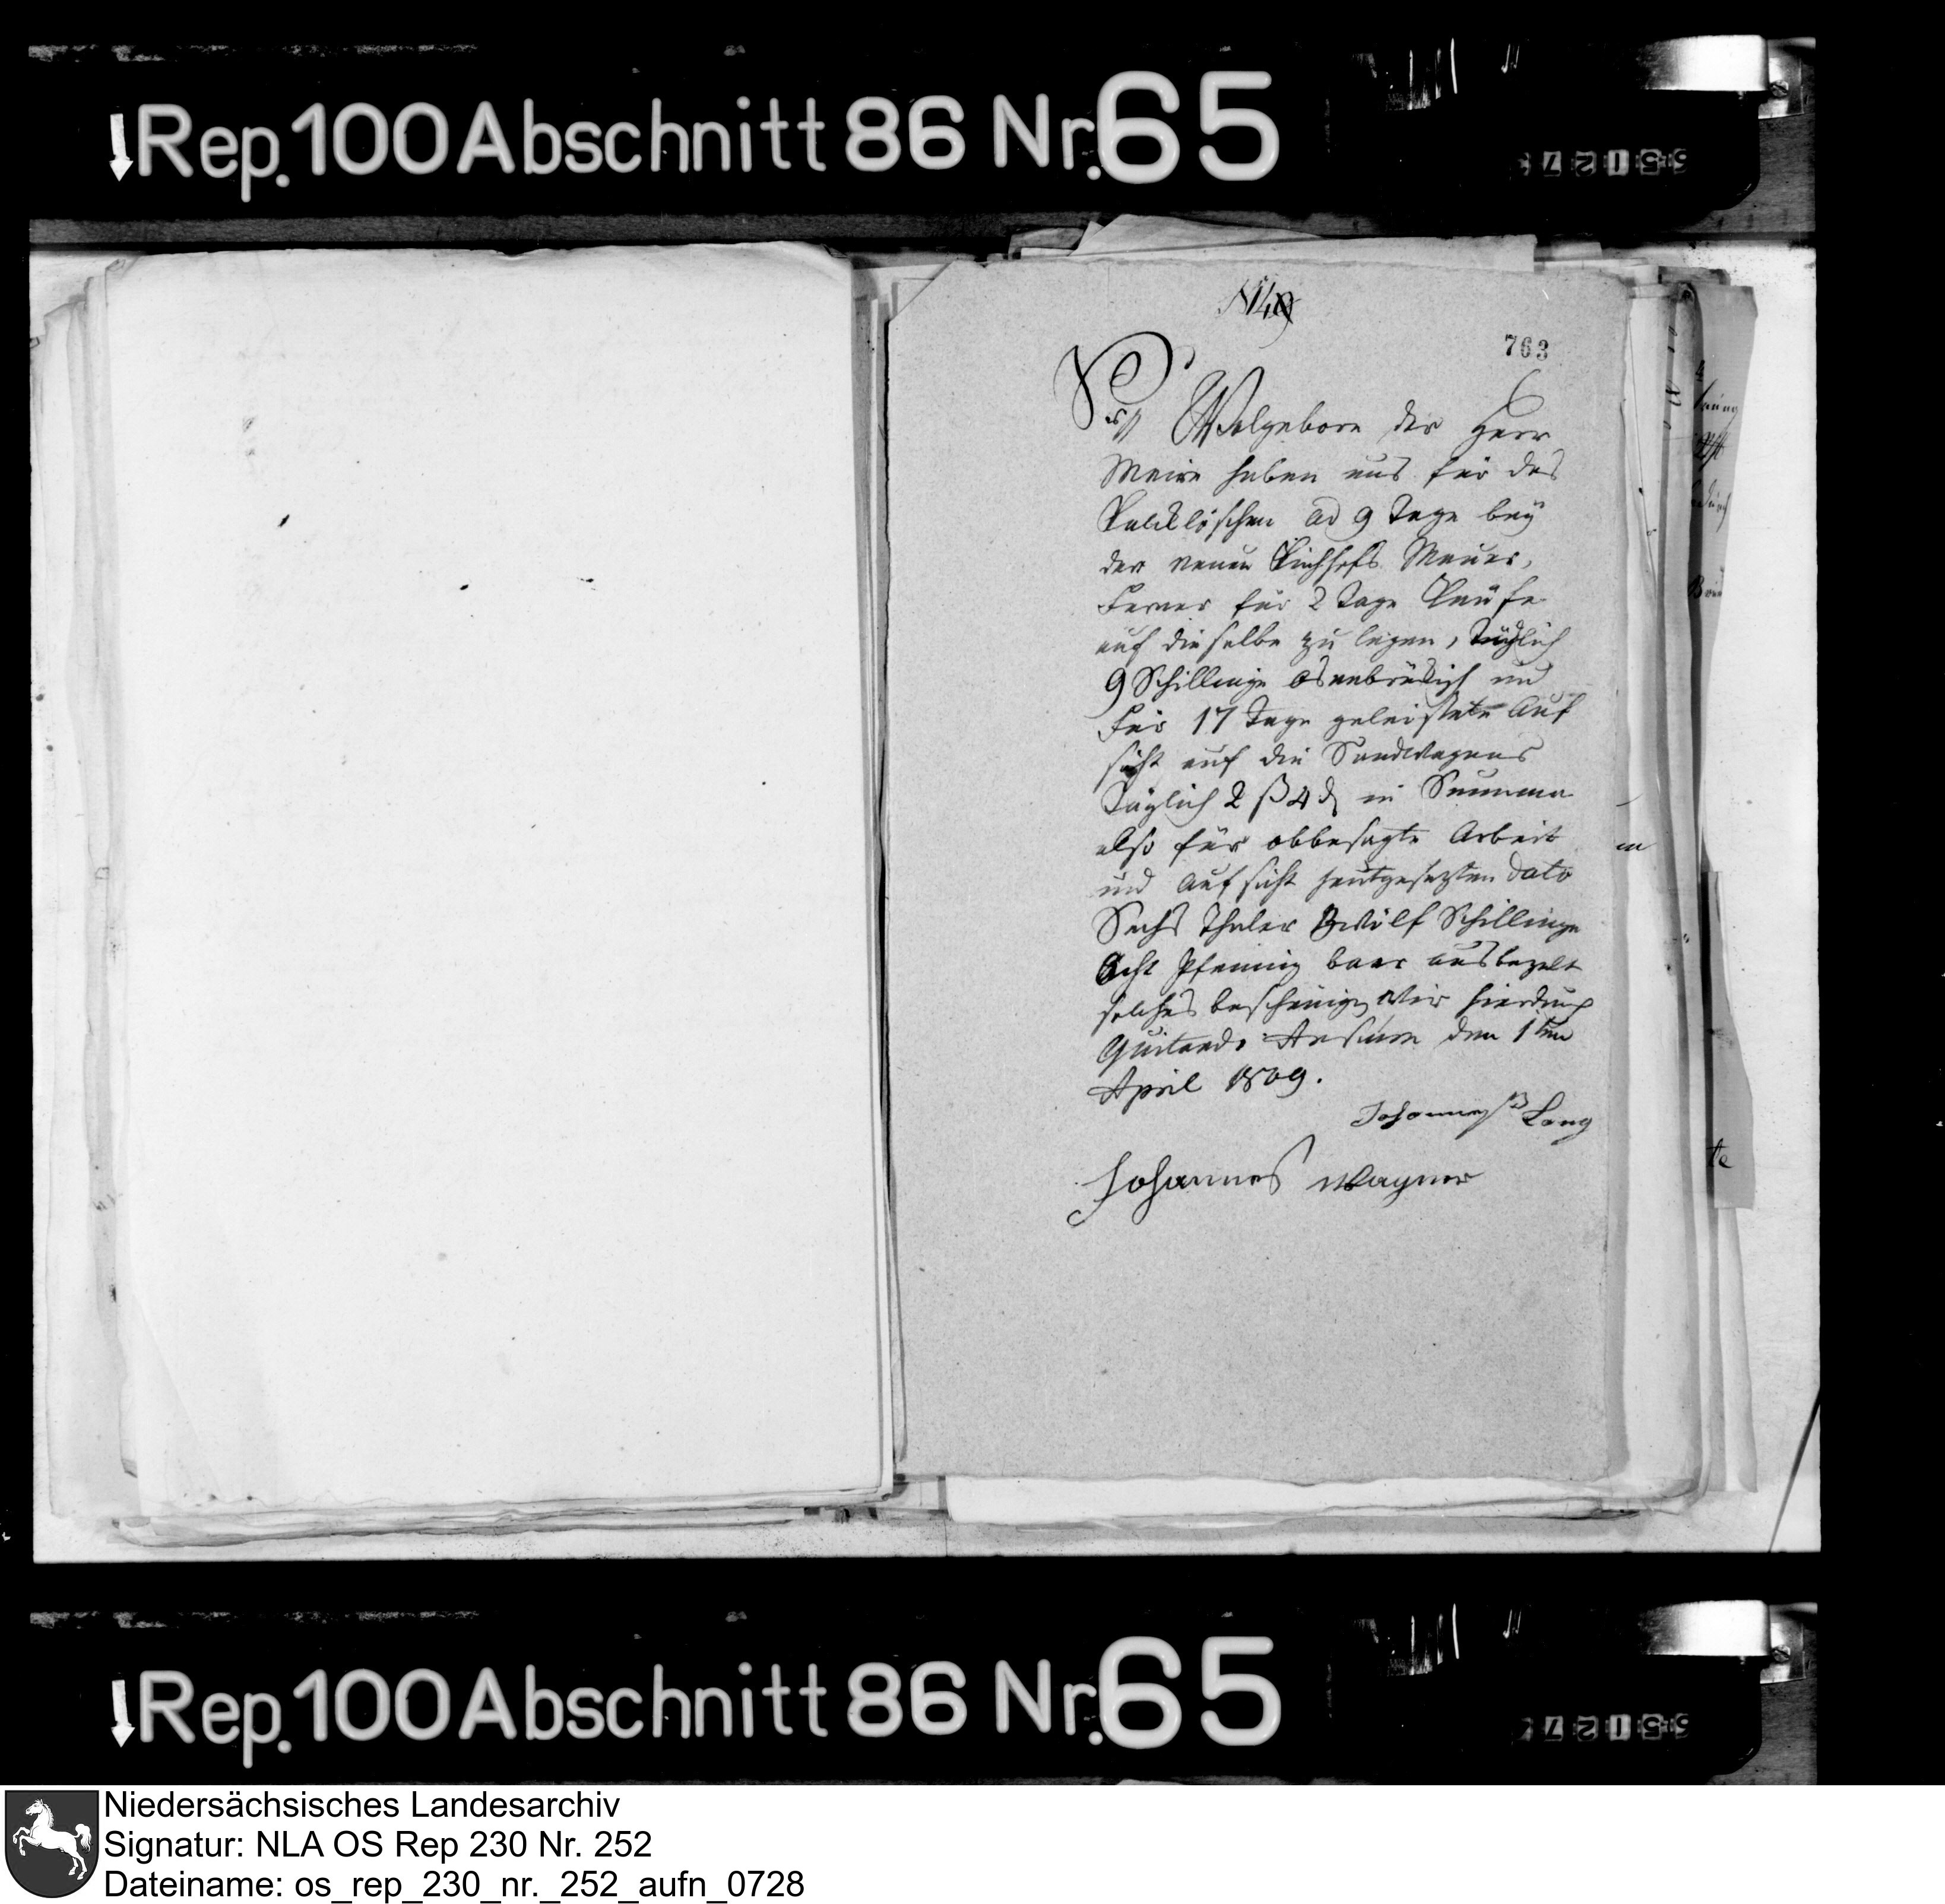 Rep. 100 Abschnitt 86 Nr. 65
763
Wolgebore der Herr
Meire haben uns für das
Kalcklöschen ad 9 Tage bey
der neuen Kirchhofs Mauer,
Ferner für 2 Tage
auf dieselbe zu legen, Täglich
9 Schillinge Osnabrükisch und
Für 17 Tage geleistete Auf
sicht auf die Sandwagens
Täglich 2 ß 4 d in Summa
also für obbesagte Arbeit
und Aufsicht heutgesezten dato
Sechs Thaler Zwölf Schillinge
Acht Pfennig baar ausbezalt
solches bescheinigen Wir hierdurch
Quitando Ankum den 1ten
April 1809.
Johannes Lang
Johannes Wagner
Rep. 100 Abschnitt 86 Nr. 65
Niedersächsisches Landesarchiv
Signatur: NLA OS Rep 230 Nr. 252
Dateiname: os_rep_230_nr._252_aufn_0728